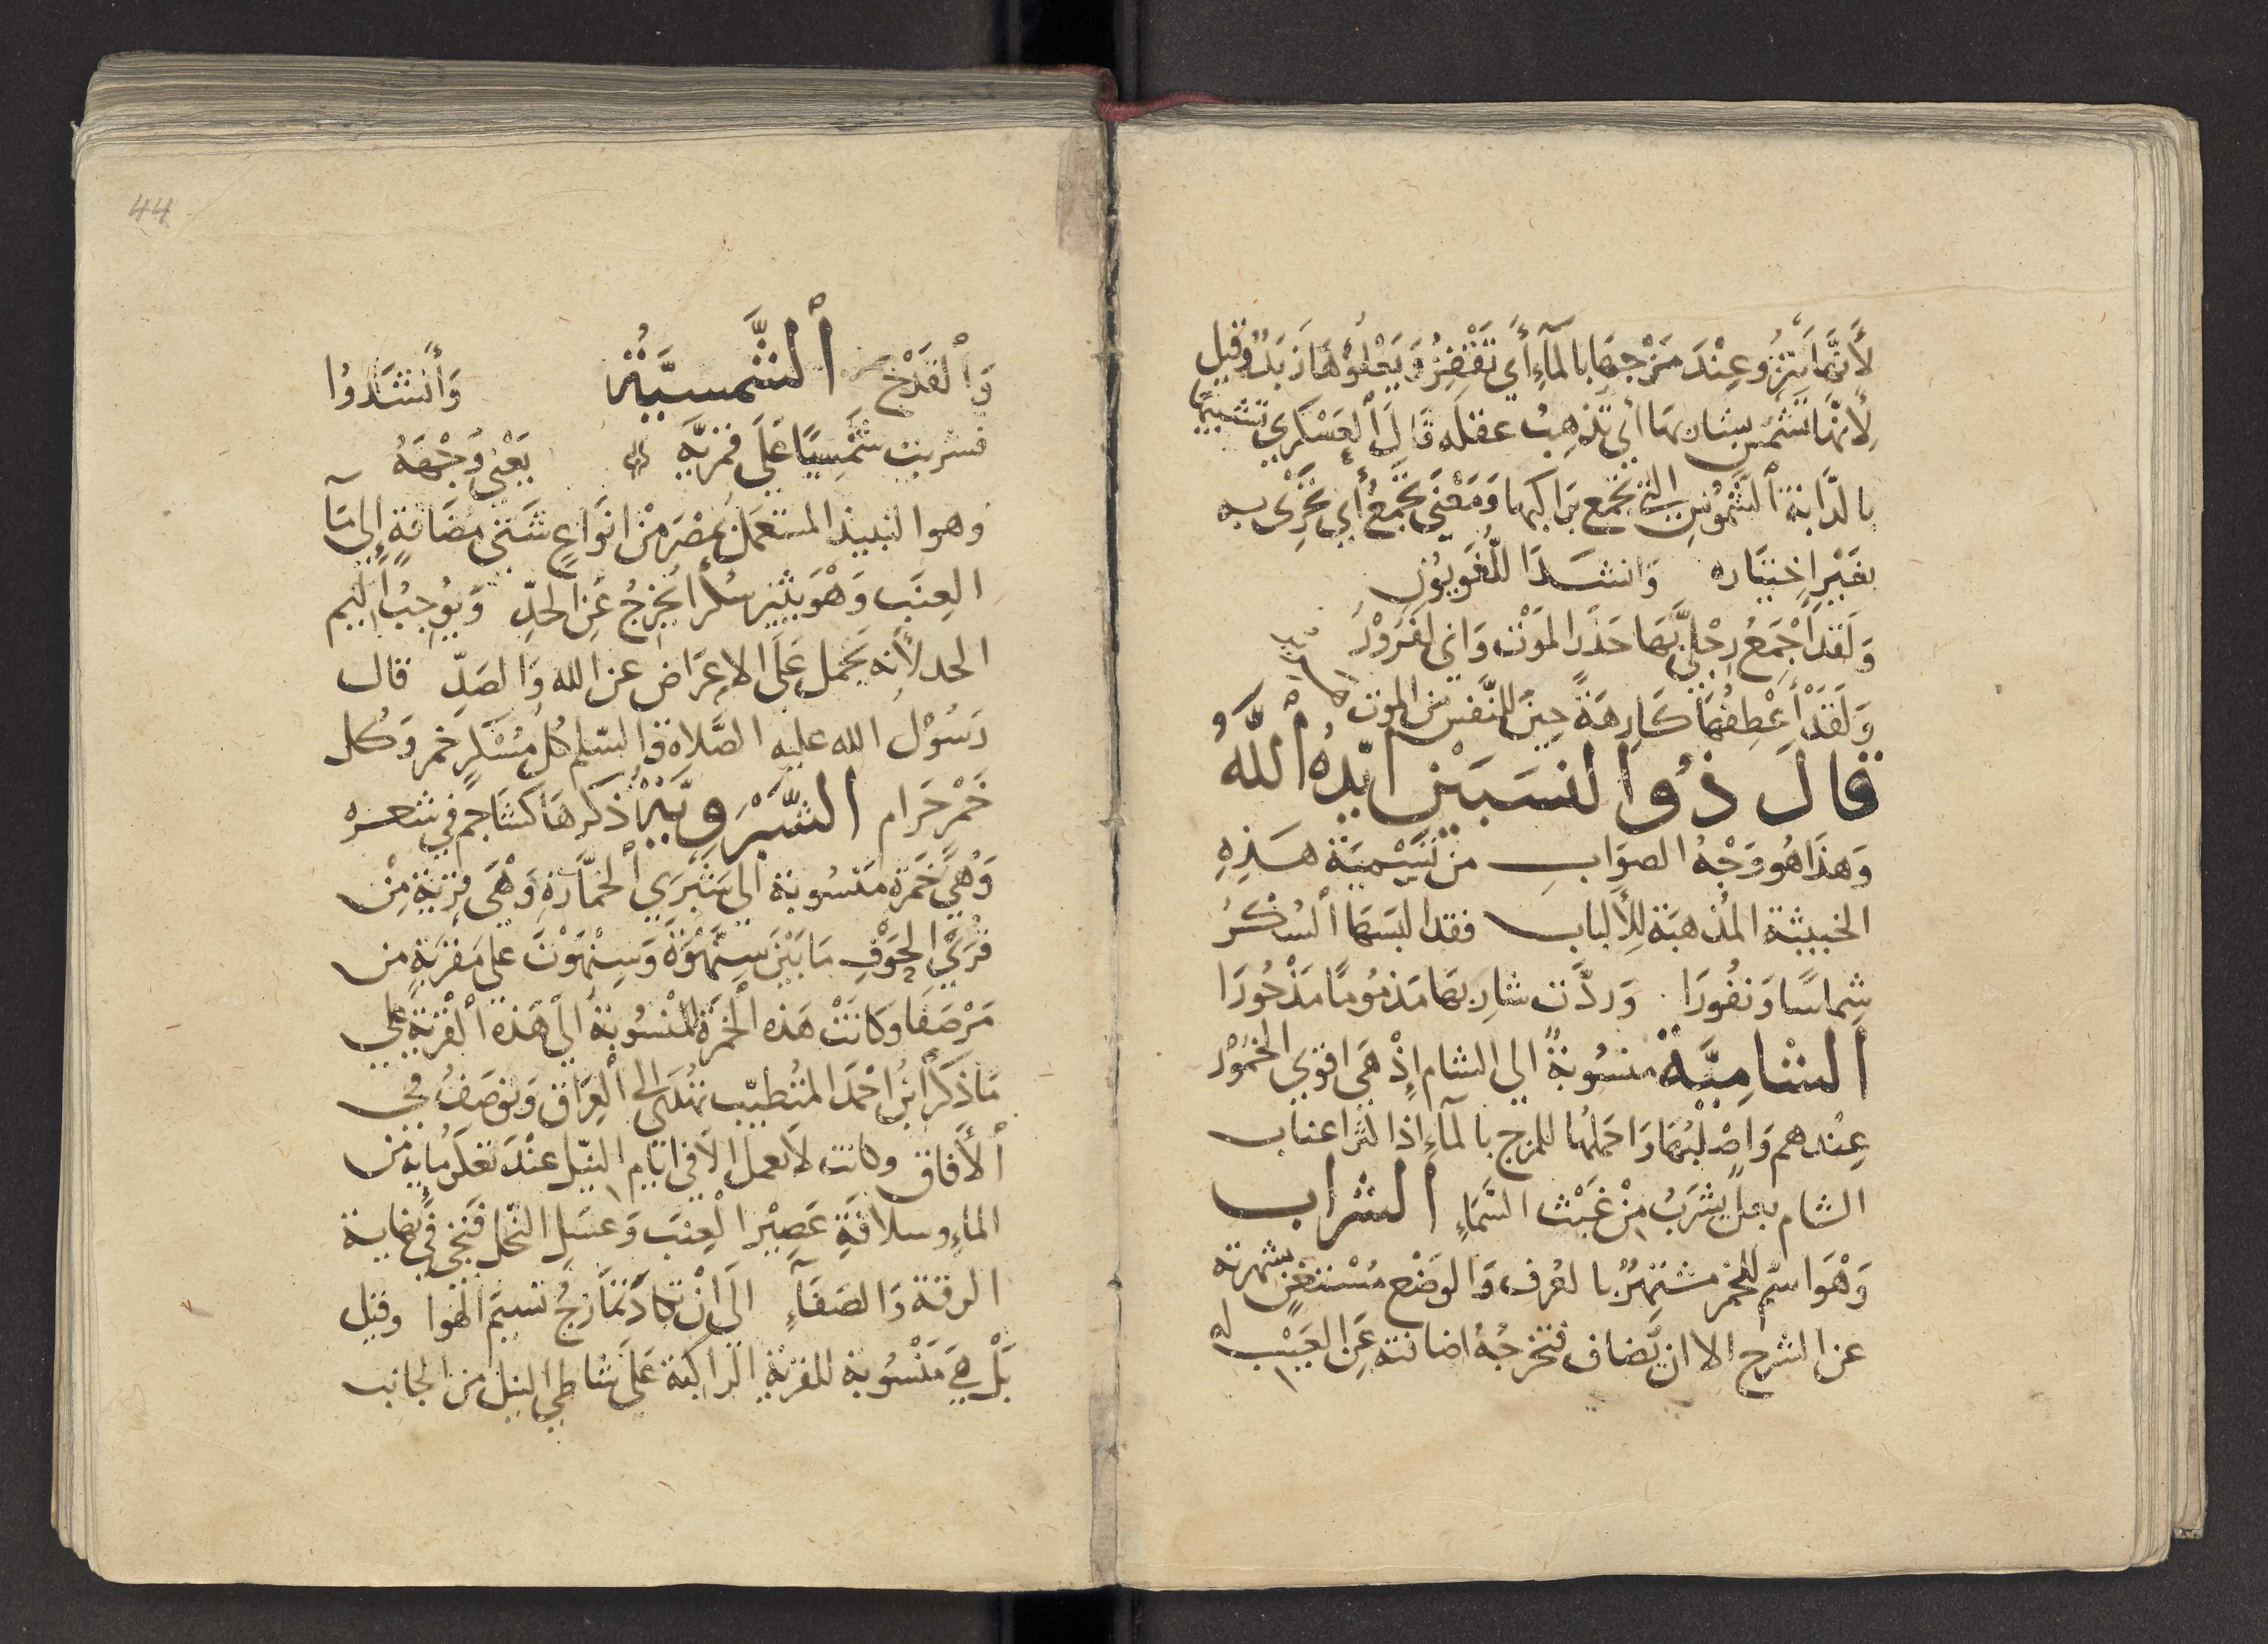 لأَنَّهَا تَنْزُو عِنْدَ مَزْجِهَا بالمآءِ أَي تَقْفِزُ وَيَعْلُوْهَا زَبَدٌ وقيل
لِأَنّهَا تَشْمُس بشاربهَا أي تذهِبُ عقلَه قَالَ ٱلعَسْكَري تشبيهًا
بالدَّابة ٱلشَّمُوْسِ التي تجمع براكبها وَمَعْنَى تَجْمَعُ أي تَجْري به
بغَيْر اِختيَاره وَانشَدَ اللُّغَويُونَ
وَلَقَد أَجْمَعُ رِجْلَيَّ بهَا حَذَرَ المَوْت وَاني لفَرَوْرُ
وَلَقَدْ أَعْطِفُهَا كَارِهَةً حِينَ للنَّفس من الموت هرير
قال ذُو النسَبَيْن ايّدهُ ٱللَّهُ
وَهذَا هُو وَجْهُ الصوَابِ من تَسْمِيَة هَذِهِ
الخبيثة المُذهبَة لِلأَلباب فقد البَسَهَا ٱلسُكْرُ
شِماسًا وَنفُورَا . وَردَّت شارِبهَا مَذمُومًا مَدْحُورَا
ٱلشَامِيَّة منسُوبةٌ الي الشام إِذْ هَى اقوَي الخمُوْر
عِنْدهم وَاصْلبُهَا وَاحمَلهُا للمزج بالمآءِ اذ اكثر اعناب
الشام بعل يشرَبُ مِنْ غَيْث السَّمَاءِ الشراب
وَهْوَ اسْم للخَمْر مشتهرٌ بالعُرف وَالوَضْع مُسْتغْنٍ بشهرته
عن الشرح الا ان يُضاف فتخرجُهُ اضافته عَن العَيْب له
44
وَٱلقَدْح ٱلشَّمسيَّةُ وَأَنشَدُوا
فشربت شَمْسِيًا عَلَى قمَريَّه يَعْنى وَجْهَهُ
وهو النبيذ المستعمَل بمصْرَ مِنْ انوَاعٍ شَتىّ مضَافةٍ إِلى مآ
العِنَب وَهْوَ يثير سُكْرًا يُخْرِجُ عَن الحدّ وَيُوجبُ أليم
الحد لأَنه يَحمل عَلَى الاِعرَاض عن الله وَالصَدّ قال
رَسُوْل الله عليه الصَّلاة والسّلم كُل مُسْكرٍ خمر وَكُل
خَمْر حَرَام الشَّبْرَوِيَّةُ ذَكَرهَا كشَاجم في شعره
وَهْيَ خَمرة منسُوبة الى شَبْرَي ٱلخمَّارَة وَهْىَ قريَة مِنْ
قُرَي الحَوْفِ مَا بَيْنَ سِنْهُوْةَ وَسِنْهُوْتَ على مَقرَبَةٍ من
مَرْصَفَا وَكانَتْ هَذه ٱلخمْرَةُ المنْسُوبَة الى هَذه ٱلقرْيَة على
مَا ذَكَرَ ٱبْنُ احْمَد المتُطبّب تهْدَى الى ٱلعِرَاق وَتوصَفُ في
ٱلأَفاق وكانت لا تعمل الا في ايَّام النِّيل عنْدَ تغيُّر مايه من
المآءِ وسلافَةِ عَصِيْر العِنَب وَعسَل النّحل فتَجي في نهاية
الرقة وَالصَفَآءِ الَى انْ تكادَ تمَازجُ نسيمَ الهَوا وقيل
بَلْ هيَ منسُوبة للقريَة الراكبة عَلَى شاطي النيل من الجانب